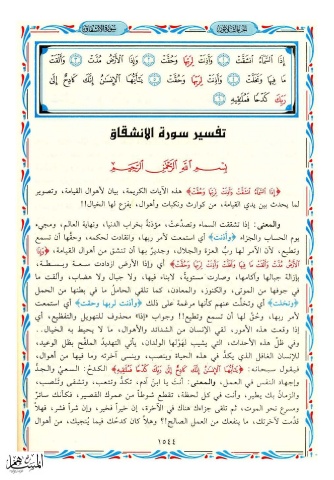 سورة الانشقاق
إِذَا السَّمَاءُ انْشَقَّتْ ١ وَأَذِنَتْ لِرَبِّهَا وَحُقَّتْ ٢ وَإِذَا الْأَرْضُ مُدَّتْ ٣ وَأَلْقَتْ
مَا فِيهَا وَتَخَلَّتْ ٤ وَأَذِنَتْ لِرَبِّهَا وَحُقَّتْ ٥ يَا أَيُّهَا الْإِنْسَانُ إِنَّكَ كَادِحٌ إِلَى
رَبِّكَ كَدْحًا فَمُلَاقِيهِ ٦
تفسير سورة الانشقاق
بسم الله الرحمن الرحيم
﴿إِذَا السَّمَاءُ انْشَقَّتْ وَأَذِنَتْ لِرَبِّهَا وَحُقَّتْ﴾ هذه الآيات الكريمة، بيان لأهوال القيامة، وتصوير
لما يحدث بين يدي القيامة، من كوارث ونكبات وأهوال، يفزع لها الخيال!!
والمعنى: إذا تشققت السماء وتصدّعت، مؤذنة بخراب الدنيا، ونهاية العالم، ومجيء
يوم الحساب والجزاء ﴿وأذنت﴾ أي استمعت لأمر ربها، وانقادت لحكمه، وحقّها أن تسمع
وتطيع، لأن الآمر لها ربُّ العزة والجلال، وجديرٌ بها أن تنشق من أهوال القيامة، ﴿وَإِذَا
الْأَرْضُ مُدَّتْ وَأَلْقَتْ مَا فِيهَا وَتَخَلَّتْ وَأَذِنَتْ لِرَبِّهَا وَحُقَّتْ﴾ أي وإذا الأرض ازدادت سعة وبسطة،
بإزالة جبالها وآكامها، وصارت مستوية، لا بناء فيها، ولا جبال ولا هضاب، وألقت ما
في جوفها من الموتى، والكنوز، والمعادن، كما تلقي الحامل ما في بطنها من الحمل
﴿وتخلت﴾ أي وتخلّت عنهم كأنها مرغمة على ذلك ﴿وأذنت لربها وحقت﴾ أي استمعت
لأمر ربها، وحُقّ لها أن تسمع وتطيع!! وجواب ﴿إذا﴾ محذوف للتهويل والتفظيع، أي
إذا وقعت هذه الأمور، لقي الإنسان من الشدائد والأهوال، ما لا يحيط به الخيال..
وفي ظلّ هذه الأحداث، التي يشيب لهولها الولدان، يأتي التهديد الملفّح بظل الوعيد،
للإنسان الغافل الذي يكدُّ في هذه الحياة وينصب، وينسى آخرته وما فيها من أهوال،
فيقول سبحانه: ﴿يَا أَيُّهَا الْإِنْسَانُ إِنَّكَ كَادِحٌ إِلَى رَبِّكَ كَدْحًا فَمُلَاقِيهِ﴾ الكدحُ: السعيُ والجدُّ
وإجهاد النفس في العمل، والمعنى: أنت يا ابن آدم، تكدُّ وتتعب، وتشقى وتنصب،
والزمان بك يطير، وأنت في كل لحظة، تقطع شوطاً من عمرك القصير، فكأنك سائرٌ
ومسرع نحو الموت، ثم تلقى جزاءك هناك في الآخرة، إن خيراً فخير، وإن شراً فشر، فهلاّ
قدّمت لآخرتك، ما ينفعك من العمل الصالح؟! وهلاّ كان كدحُك فيما يُنجيك، من أهوال
١٥٤٤